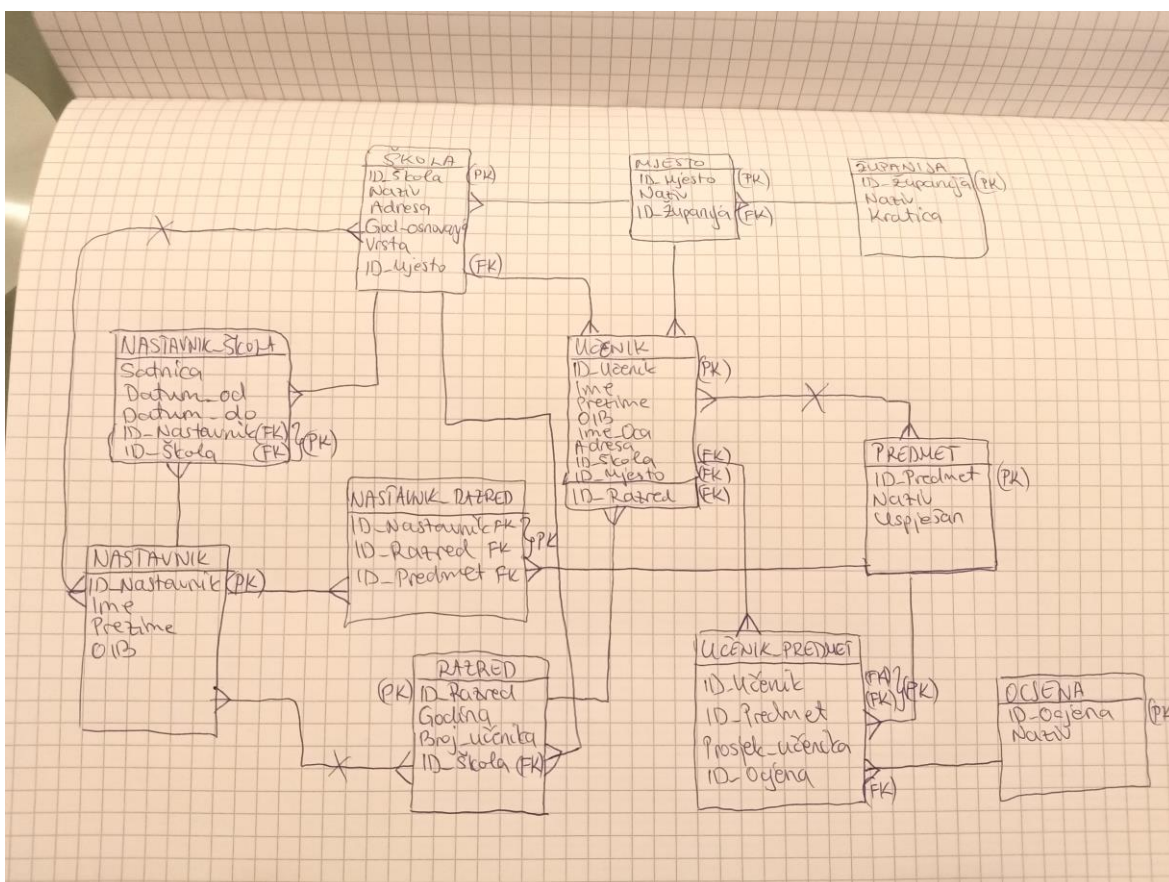 ŠKOLA
ID_Škola (PK)
Naziv
Adresa
God-osnovanja
Vrsta
ID_Mjesto (FK)
MJESTO
ID_Mjesto (PK)
Naziv
ID_Županija (FK)
ŽUPANIJA
ID_Županija (PK)
Naziv
Kratica
NASTAVNIK_ŠKOLA
Satnica
Datum_od
Datum_do
ID_Nastavnik (FK)
ID_Škola (FK) (PK)
UČENIK
ID_Učenik (PK)
Ime
Prezime
OIB
Ime_Oca
Adresa
ID_Škola (FK)
ID_Mjesto (FK)
ID_Razred (FK)
PREDMET
ID_Predmet (PK)
Naziv
Uspješan
NASTAVNIK_RAZRED
ID_Nastavnik FK
ID_Razred FK PK
ID_Predmet FK
NASTAVNIK
ID_Nastavnik (PK)
Ime
Prezime
OIB
RAZRED
(PK) ID_Razred
Godina
Broj_učenika
ID_Škola (FK)
UČENIK_PREDMET
ID_Učenik (FK)
ID_Predmet (FK) (PK)
Prosjek_učenika
ID_Ocjena (FK)
OCJENA
ID_Ocjena (PK
Naziv